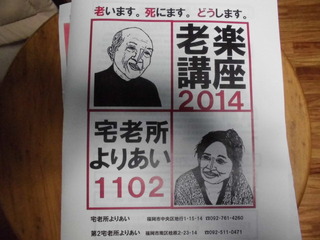 老います。死にます。どうします。
老楽
講座
2014
宅老所
よりあい
1102
宅老所よりあい 福岡市中央区地行1-15-14 ☎092-761-4260
第2宅老所よりあい 福岡市南区桧原3-23-14 ☎092-511-0471